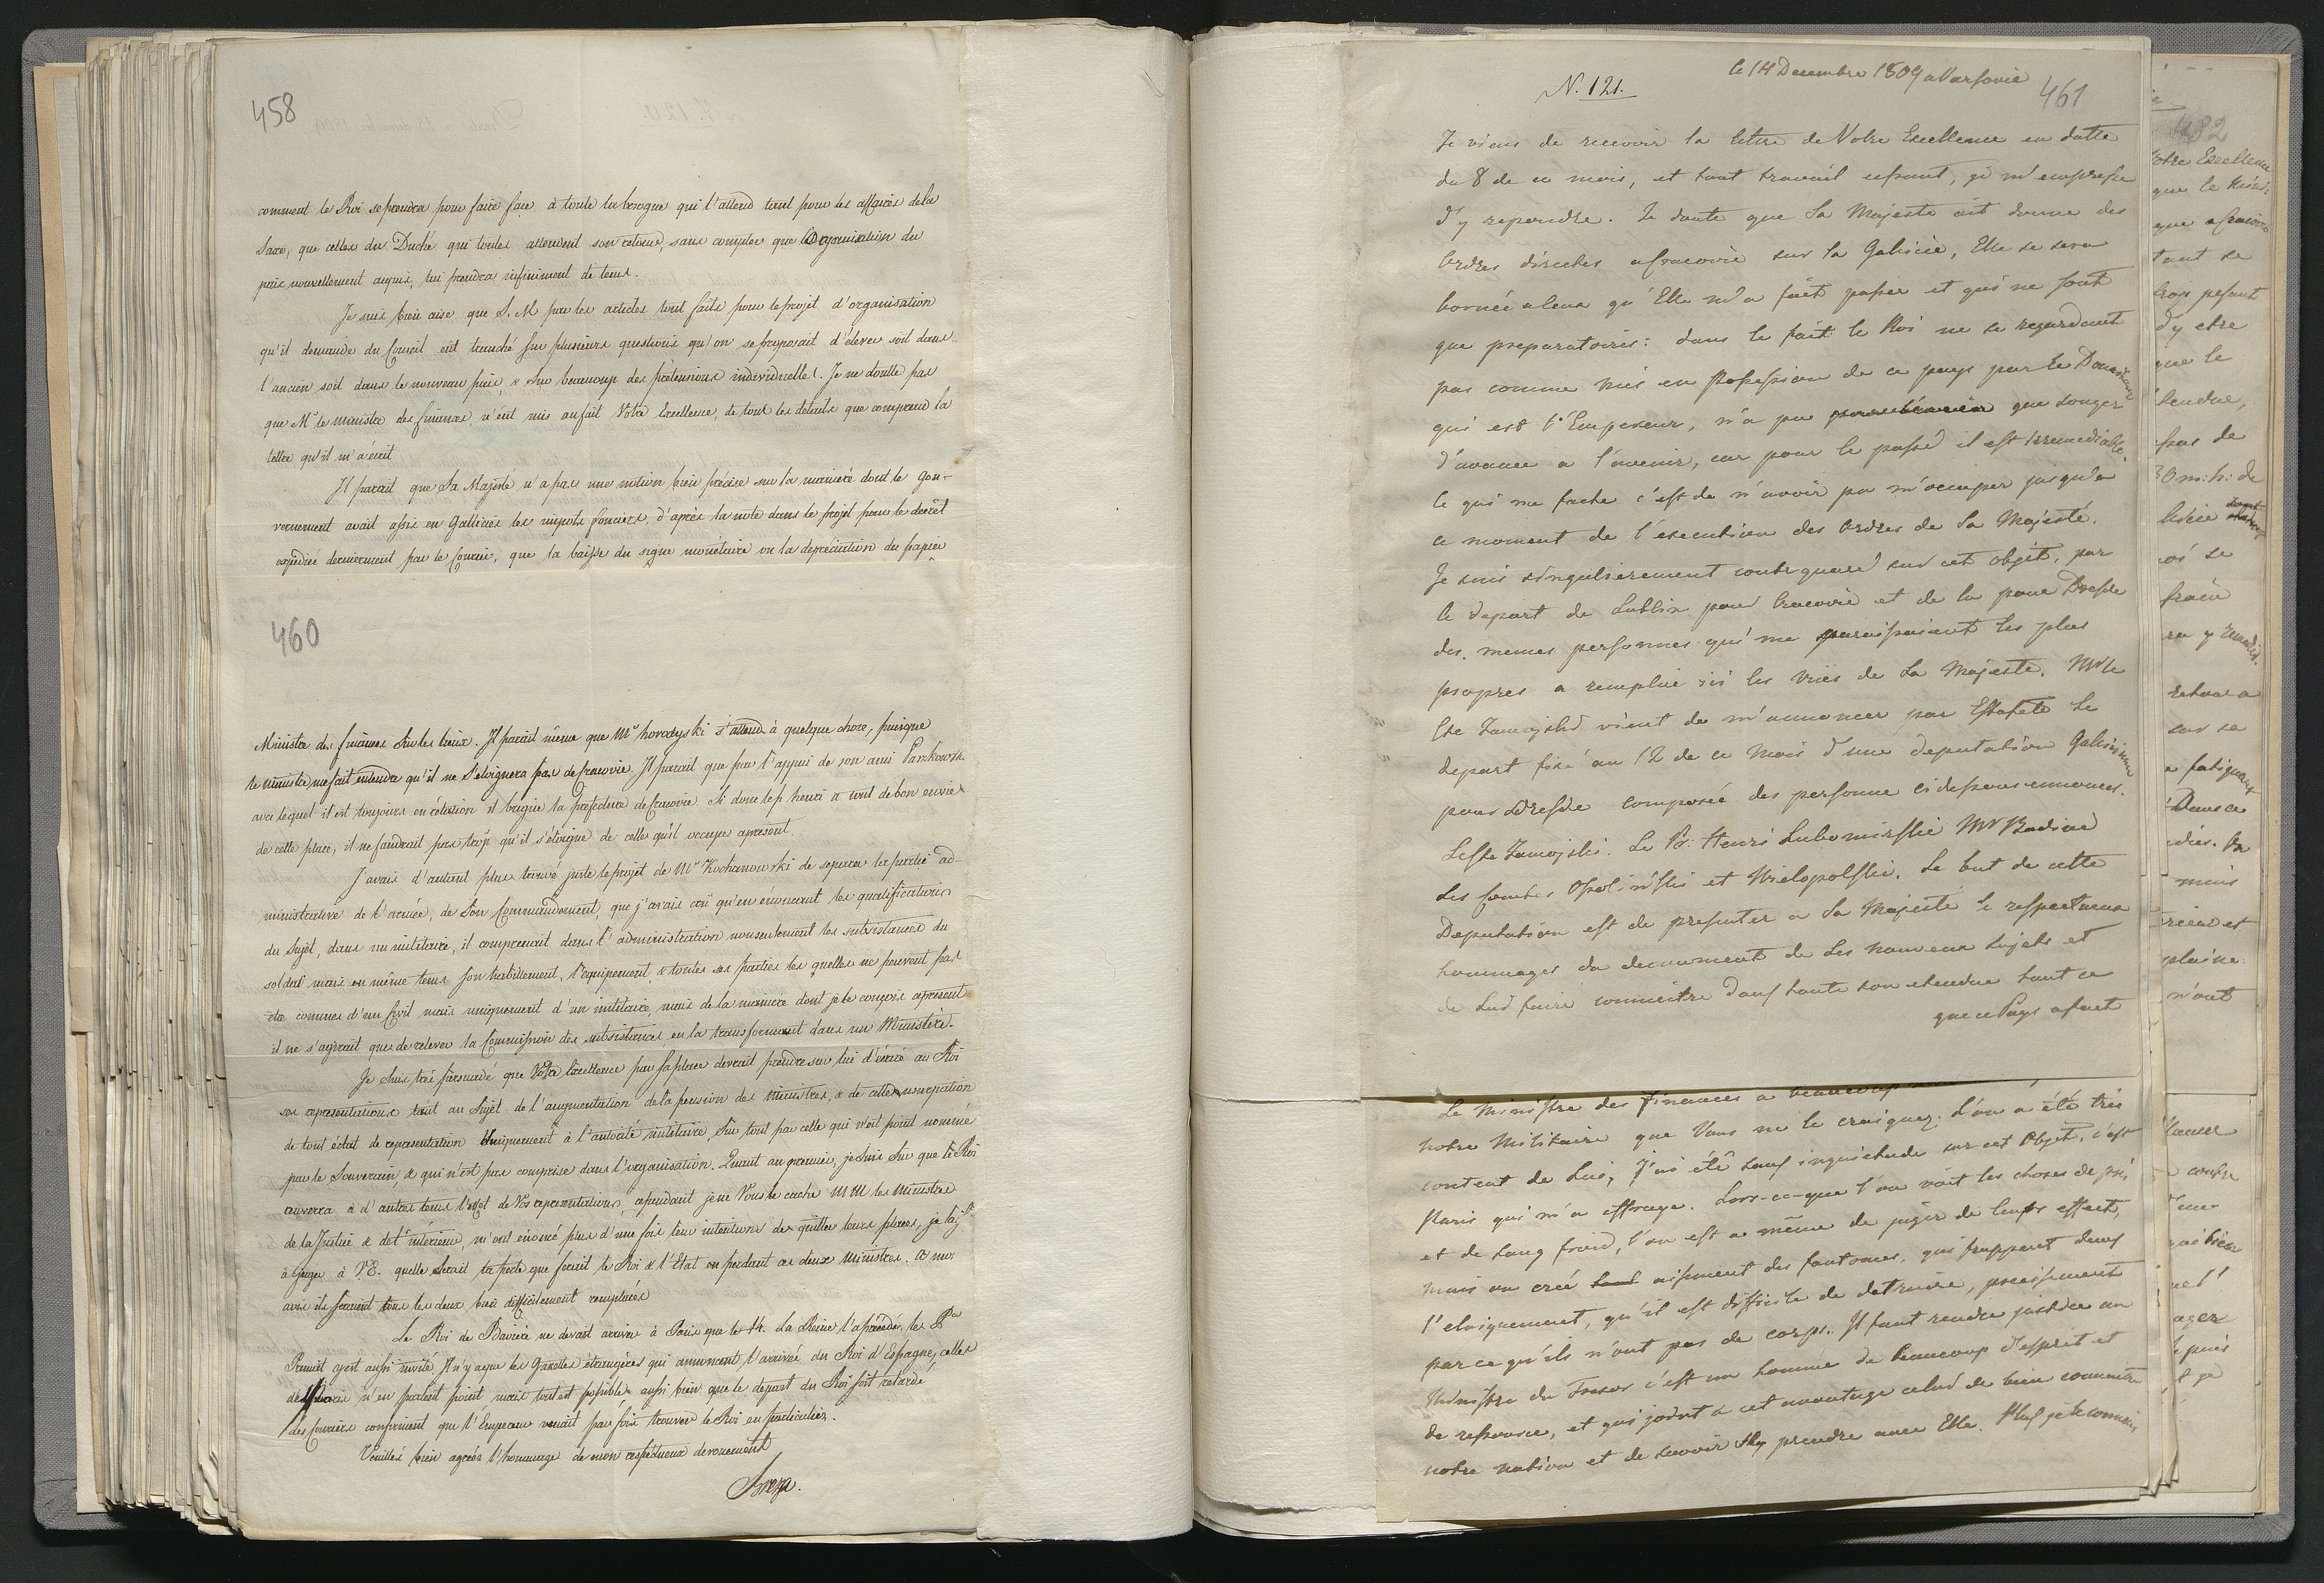 458
comment le Roi se prendra pour faire face à toute la besogne qui l'attend tant pour les affaires de la
Saxe, que celles du Duché qui toutes attendent son retour, sans compter que l'Organisation du
païs nouvellement acquis, lui prendra infiniment de tems.
Je suis bien aise que S. M. par les articles tout faits pour le projet d'organisation
qu'il demande du Conseil eût tranché sur plusieurs questions qu'on se proposait d'élever soit dans
l'ancien soit dans le nouveau païs, & sur beaucoup des prétensions individuelles. Je ne doutte pas
que Mr le ministre des finances, n'eût mis au fait Votre Excellence, de tout les détails que comprend la
lettre qu'il m'a écrit
Il parait que Sa Majesté n'a pas une notion bien précise sur la manière dont le gou-
vernement avait assis en Gallicie les impots fonciers, d'après la note dans le projet pour le decrèt
expédiée dernierment par le Courrier, que la baisse du signe monétaire ou la dépréciation du papier
460
Ministre des finances sur les lieux. Il parait même que Mr horodyski s'attend à quelque chose, puisque
le ministre me fait entendre qu'il ne s'eloignera pas de Cracovie. Il parait que par l'appui de son ami
avec lequel il est toujours en rélation il brigue la préfecture de Cracovie. Si donc le p. henri a tout de bon envie
de cette place, il ne faudrait pas trop qu'il s'éloigne de celle qu'il occupe apresent.
J'avais d'autant plus trouvé juste le projet de Mr Kochanowski de separer la partie ad-
ministrative de l'armée, de son Commandement, que j'avais crû qu'en énoncant les qualifications
du Sujèt, dans un militaire, il comprenait dans l'administration nonseulement les subsistances du
soldat mais en même tems son habillement, l'equipement & toutes ses parties les quelles ne peuvent pas
être connues d'un Civil mais uniquement d'un militaire, mais de la manière dont je le conçois apresent
il ne s'agirait que de relever la Commission des subsistances, en la transformant dans un Ministère.
Je suis très persuadé que Votre Excellence par sa place devrait prendre sur lui d'écrire au Roi
ses représentations tant au Sujèt de l'augmentation de la pension des ministres, & de cette usurpation
de tout éclat de représentation uniquement à l'autorité militaire, sur tout par celle qui n'est point nommé
par le Souverain, & qui n'est pas comprise dans l'organisation. Quant au premier, je suis sur que le Roi
renverra à d'autres tems l'effet de Vos representations, cependant je ne Vous le cache MM les Ministres
de la Justice & de l'intérieur, m'ont énoncé plus d'une fois leur intentions de quitter leurs places, je laisse
à juger à V.E. quelle serait la perte que ferait le Roi & l'Etat en perdant ces deux Ministres. A mon
avis ils seraient tous les deux bien difficilement remplacés
Le Roi de Bavière ne devait arriver à Paris que le 14. La Reine l'a précédé, les Pce
Primat y est aussi invité. Il n'y a que les Gazettes étrangères qui annoncent l'arrivée du Roi d'Espagne, celles
de Paris n'en parlent point, mais tout est possible aussi bien que le depart du Roi soit retardé
des Courriers confirment que l'Empereur venait par fois trouver le Roi en particulier.
Veuillés bien agréer l'hommage de mon respectueux devouement
Breza.
N. 121.
le 14 Decembre 1809 a Varsovie
461
Je viens de recevoir la lettre de Votre Excellence en datte
du 8 de ce mois, et tout travail cessant, je m'empresse
d'y repondre. Je doute que Sa Majesté ait donné des
Ordres directes a Cracovie sur la Galicie, Elle se sera
bornée a ceux qu'Elle m'a fait passer et qui ne sont
que preparatoires: dans le fait le Roi ne se regardant
pas comme mis en Possession de ce pays par le Donateur
qui est l'Empereur, n'a pu que songer
d'avance a l'avenir, car pour le passé il est irremediable.
Ce qui me fache c'est de n'avoir pu m'occuper jusqu'a
ce moment de l'execution des Ordres de Sa Majesté.
Je suis singulierement contrequaré sur cet objet, par
le depart de Lublin pour Cracovie et de la pour Dresde
des memes personnes qui me paraissaient les plus
propres a remplir ici les vues de Sa Majesté. Mr le
Cte Zamoyski vient de m'annoncer par Estafete le
depart fixé au 12 de ce Mois d'une deputation Galicienne
pour Dresde composée des personne ci dessous ennoncés.
Le Cte Zamojski. Le Pr: Henri Lubomirski Mr Badini
Les Comtes Ossolinski et Wielopolski. Le but de cette
Deputation est de presenter a Sa Majesté le respectueux
hommages du devouement de Ses nouveaux Sujets et
de Lui faire connaitre dans toute son etendue tout ce
que ce Pays a fait
Le Ministre des Finances a beaucoup
notre Militaire que Vous ne le craignez. L'on a été très
content de Lui; J'ai été sans inquietude sur cet Objet, c'est
Paris qui m'a effrayé. Lors-ce-que l'on voit les choses de près
et de sang froid, l'on est a même de juger de leurs effect,
mais on creé aisement des fantomes, qui frappent dans
l'eloignement, qu'il est difficile de detruire, precisement
parcequ'ils n'ont pas de corps. Il faut rendre justice au
Ministre du Tresor c'est un homme de beaucoup d'esprit et
de ressource, et qui joint a cet avantage celui de bien connaitre
notre nation et de savoir s'y prendre avec Elle. Plus je le connais
482
Votre Excellence
que le
que a Cracovie
tant se
trop pesant
d'y etre
que le
tendue,
pas de
30 m: h: de
se
remedié.
retour a
sur sa
fatiguant
Dans ce
mais
et
plaine
n'ont
contre
bien
ager
puis
et je